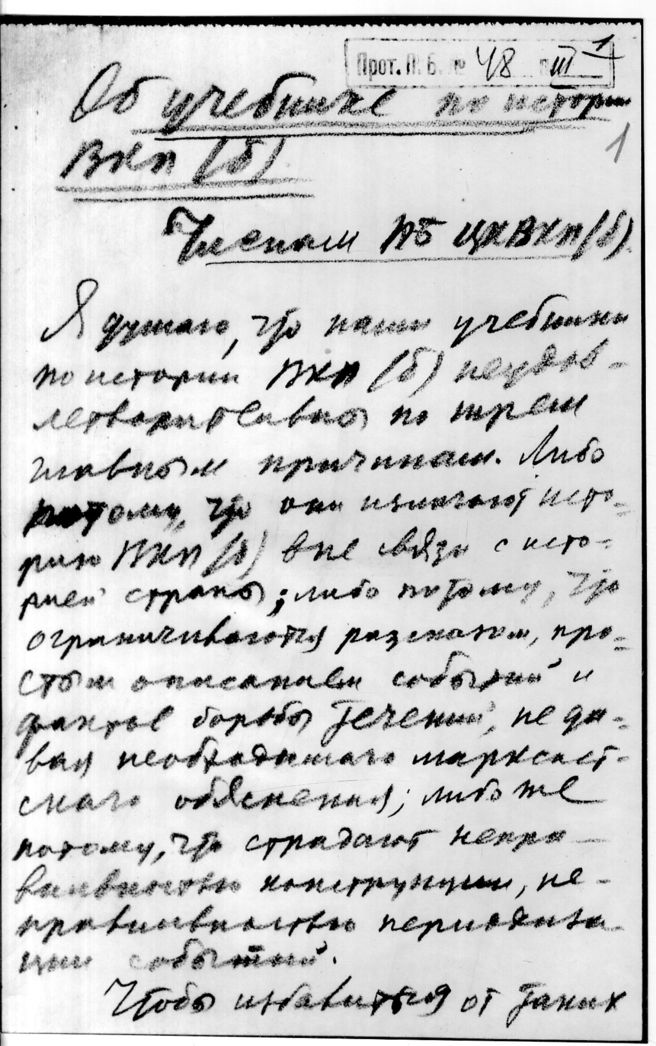 Прот. П. Б. № 48 п. III 1
Об учебнике по истории
ВКП(б)
1
Членам ПБ ЦК ВКП(б).
Я думаю, что наши учебники
по истории ВКП(б) неудов-
летворительны по трем
главным причинам. Либо
потому, что они излагают исто-
рию ВКП(б) вне связи с исто-
рией страны; либо потому, что
ограничиваются рассказом, про-
стым описанием событий и
фактов борьбы течений, не да-
вая необходимого марксист-
ского объяснения; либо же
потому, что страдают непра-
вильностью конструкции, не-
правильностью периодиза-
ции событий.
Чтобы избавиться от таких